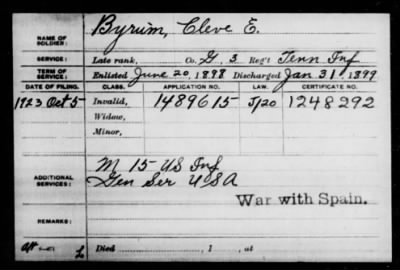 NAME OF SOLDIER: Byrum, Cleve E.
SERVICE: Late rank, Co. G, 3 Reg't Tenn Inf
TERM OF SERVICE: Enlisted June 20, 1898 Discharged Jan 31, 1899
DATE OF FILING. CLASS. APPLICATION NO. LAW. CERTIFICATE NO.
1923 Oct 5 Invalid, 1489615 J/20 1248292
Widow,
Minor,
ADDITIONAL SERVICES: M 15 - US Inf
Gen Ser USA
War with Spain.
REMARKS:
Died , 1 , at